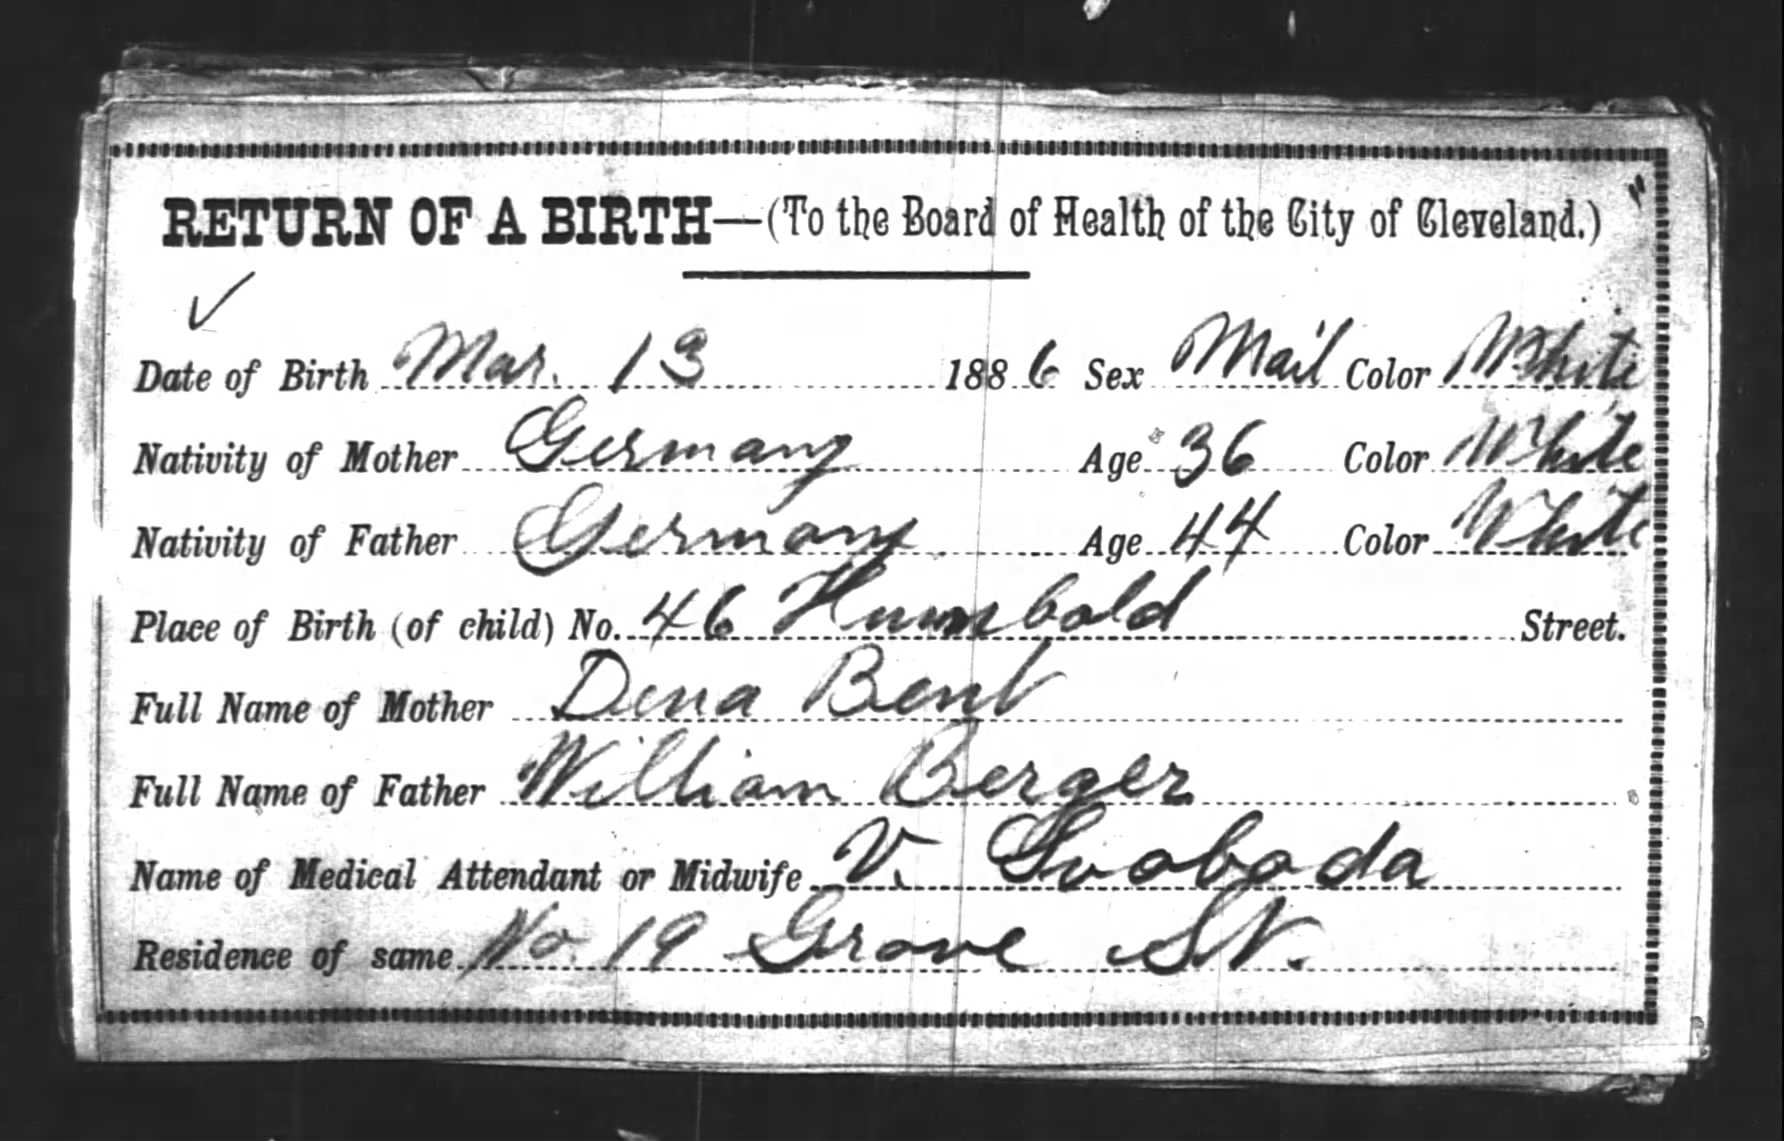 RETURN OF A BIRTH—(To the Board of Health of the City of Cleveland.)
Date of Birth Mar. 13 1886 Sex Mail Color White
Nativity of Mother Germany Age 36 Color White
Nativity of Father Germany Age 44 Color White
Place of Birth (of child) No. 46 Humbold Street.
Full Name of Mother Dena Bent
Full Name of Father William Berger
Name of Medical Attendant or Midwife V. Svoboda
Residence of same No. 19 Grove St.